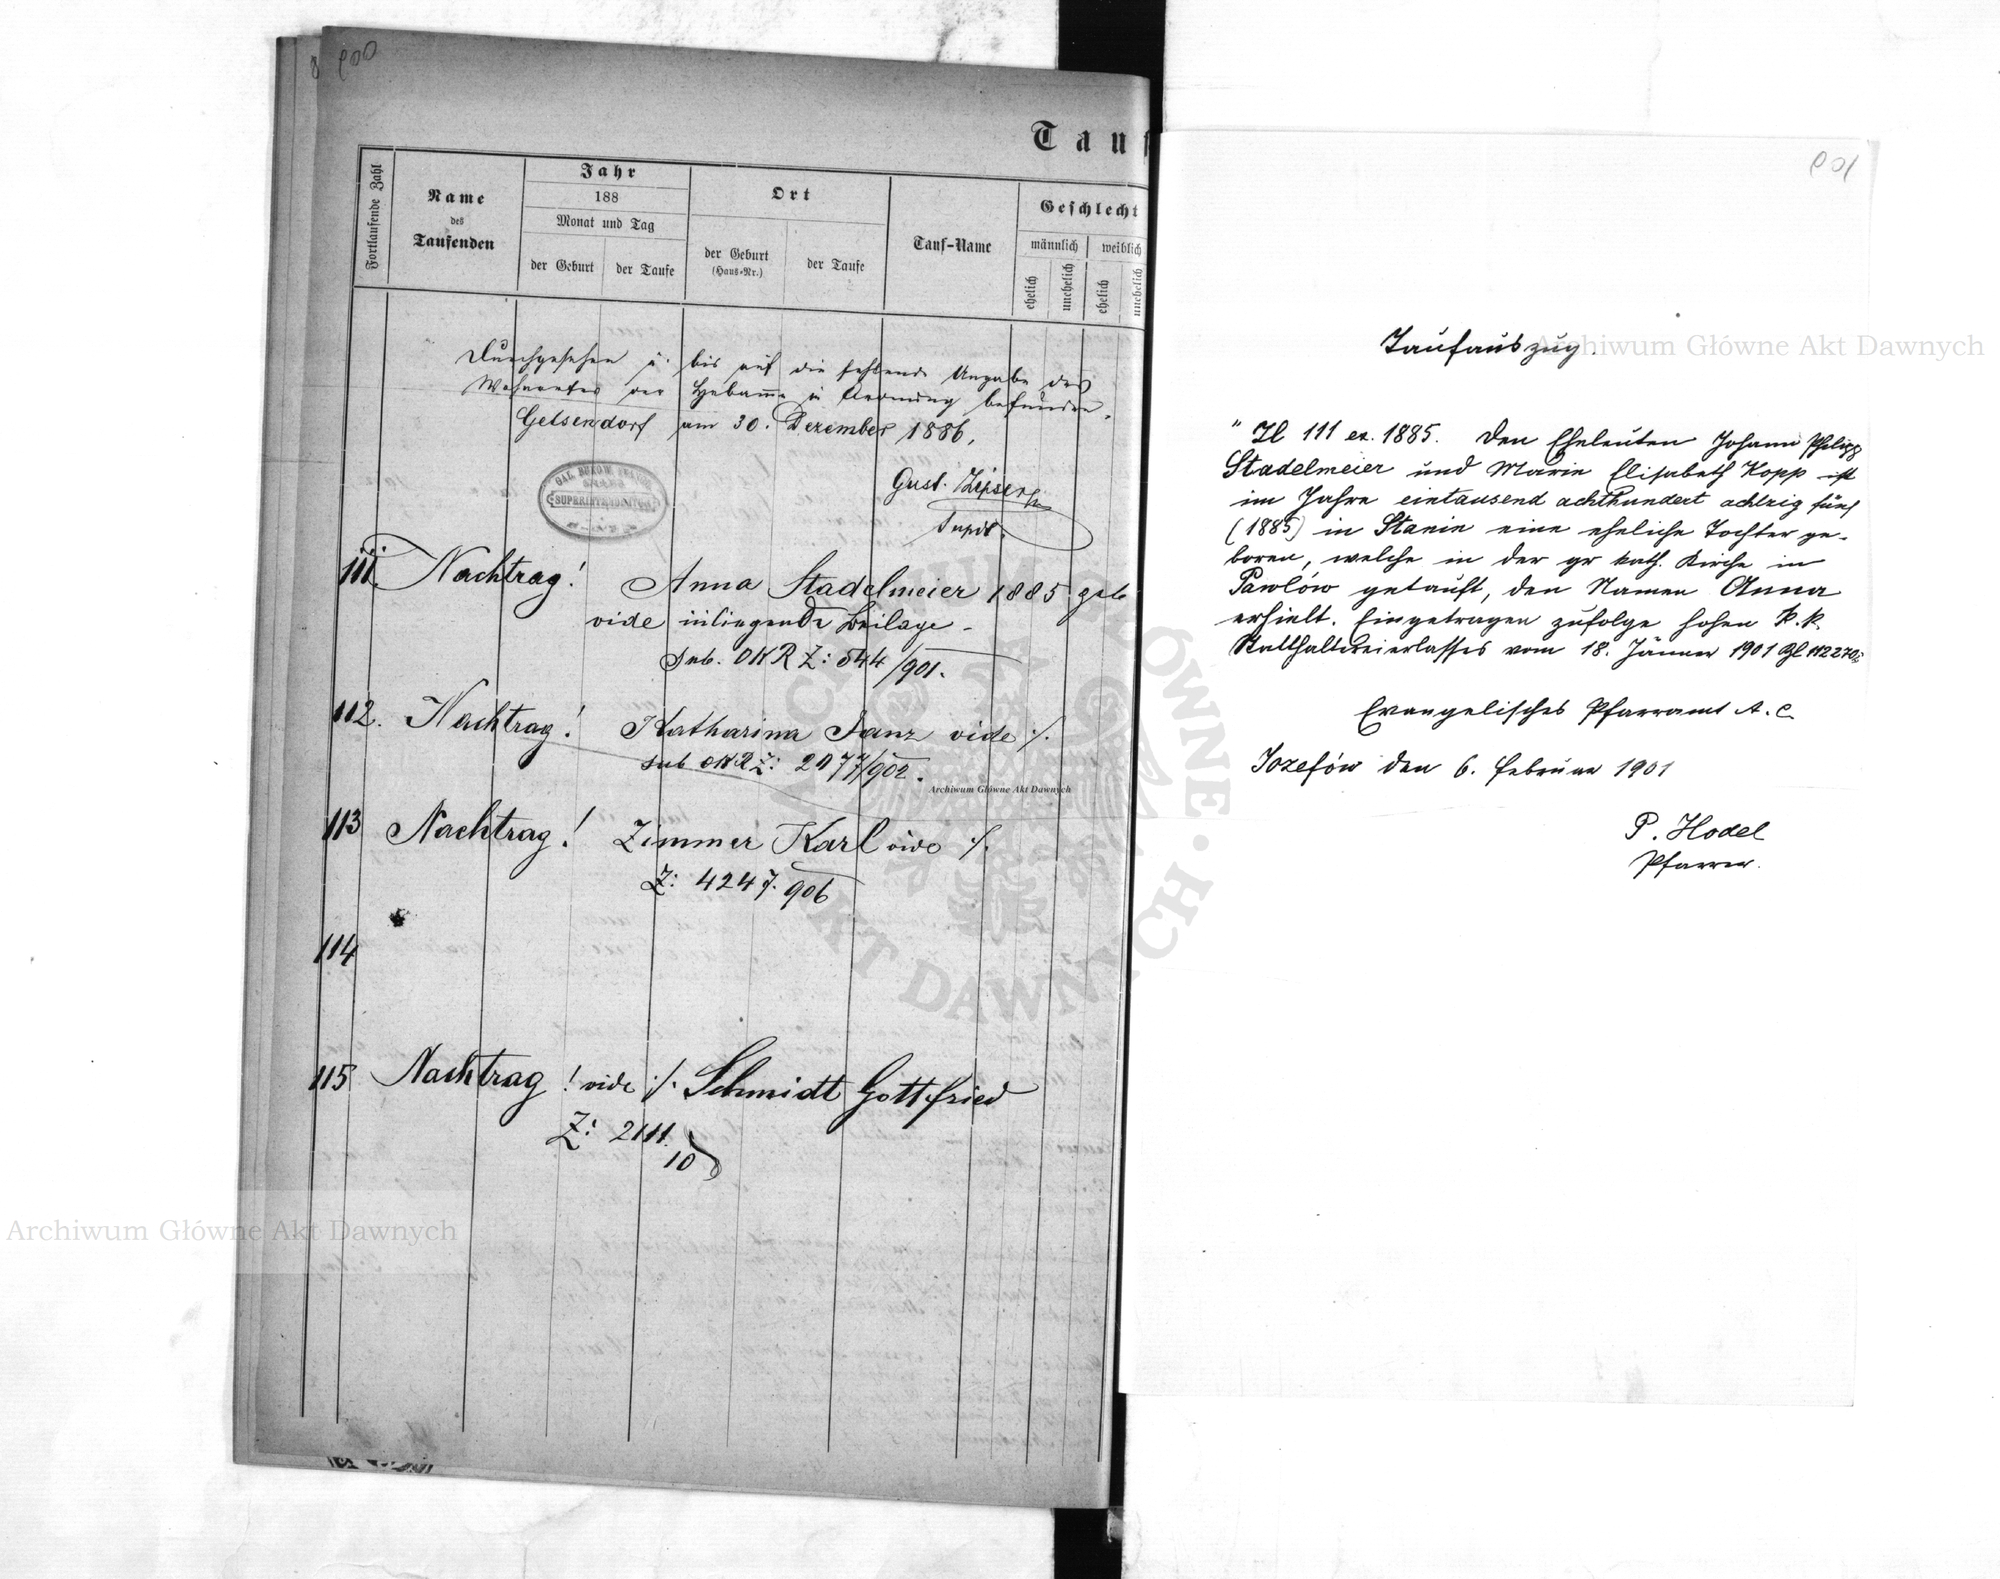 900
Tauf
Fortlaufende Zahl
Name
des
Taufenden
Jahr
188
Monat und Tag
der Geburt
der Taufe
Ort
der Geburt
(Haus-Nr.)
der Taufe
Tauf-Name
Geschlecht
männlich
weiblich
ehelich
unehelich
ehelich
unehelich
Durchgesehen u. bis auf die fehlende Angabe des
Wohnortes der Hebamme in Ordnung befunden.
Gelsendorf am 30. Dezember 1886.
SUPERINTENDENTUR
Gust. Zipser
Supdt.
111. Nachtrag! Anna Stadelmeier 1885 geb
vide inliegende Beilage -
sub. OKR Z: 544/901.
112. Nachtrag! Katharina Janz vide ·/.
sub OKR Z: 2977/902.
113 Nachtrag! Zimmer Karl vide ·/.
Z: 4247. 906
114
115 Nachtrag! vide ·/. Schmidt Gottfried
Z: 2111.
10
901
Taufauszug.
" Zl 111 ex. 1885. Den Eheleuten Johann Philipp
Stadelmeier und Marie Elisabeth Kopp ist
im Jahre eintausend achthundert achtzig fünf
(1885) in Stanin eine eheliche Tochter ge-
boren, welche in der gr kath. Kirche in
Pawlów getauft, den Namen Anna
erhielt. Eingetragen zufolge hohen k.k.
Statthaltereierlasses vom 18. Jänner 1901 Zl 112270
Evangelisches Pfarramt A. C.
Jozefów den 6. Februar 1901
P. Hodel
Pfarrer.
Archiwum Główne Akt Dawnych
Archiwum Główne Akt Dawnych
Archiwum Główne Akt Dawnych
ARCHIWUM GŁÓWNE · AKT DAWNYCH ·